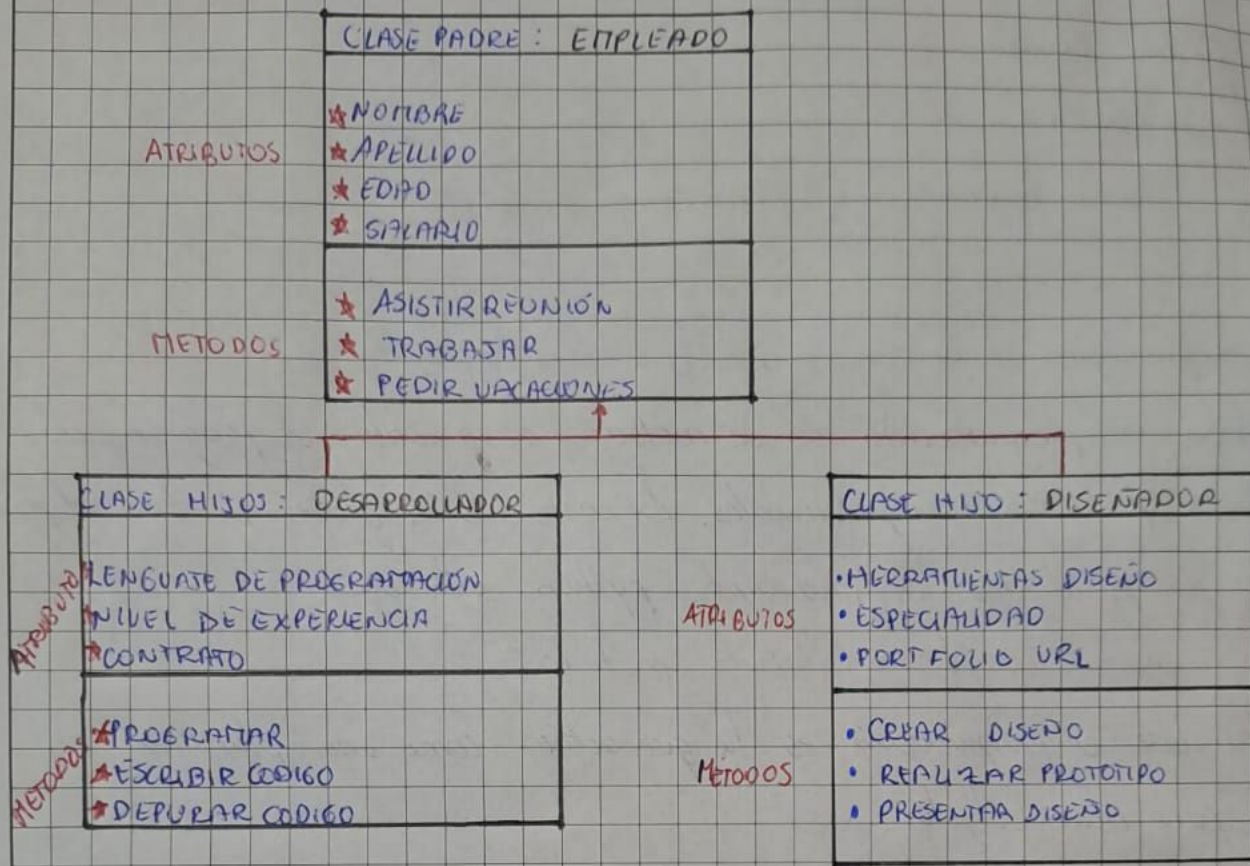 CLASE PADRE: EMPLEADO
ATRIBUTOS
★ NOMBRE
★ APELLIDO
★ EDAD
★ SALARIO
METODOS
★ ASISTIR REUNIÓN
★ TRABAJAR
★ PEDIR VACACIONES
CLASE HIJOS: DESARROLLADOR
ATRIBUTO
LENGUAJE DE PROGRAMACIÓN
NIVEL DE EXPERIENCIA
★ CONTRATO
METODOS
★ PROGRAMAR
★ ESCRIBIR CODIGO
★ DEPURAR CODIGO
CLASE HIJO: DISEÑADOR
ATRIBUTOS
• HERRAMIENTAS DISEÑO
• ESPECIALIDAD
• PORTFOLIO URL
METODOS
• CREAR DISEÑO
• REALIZAR PROTOTIPO
• PRESENTAR DISEÑO